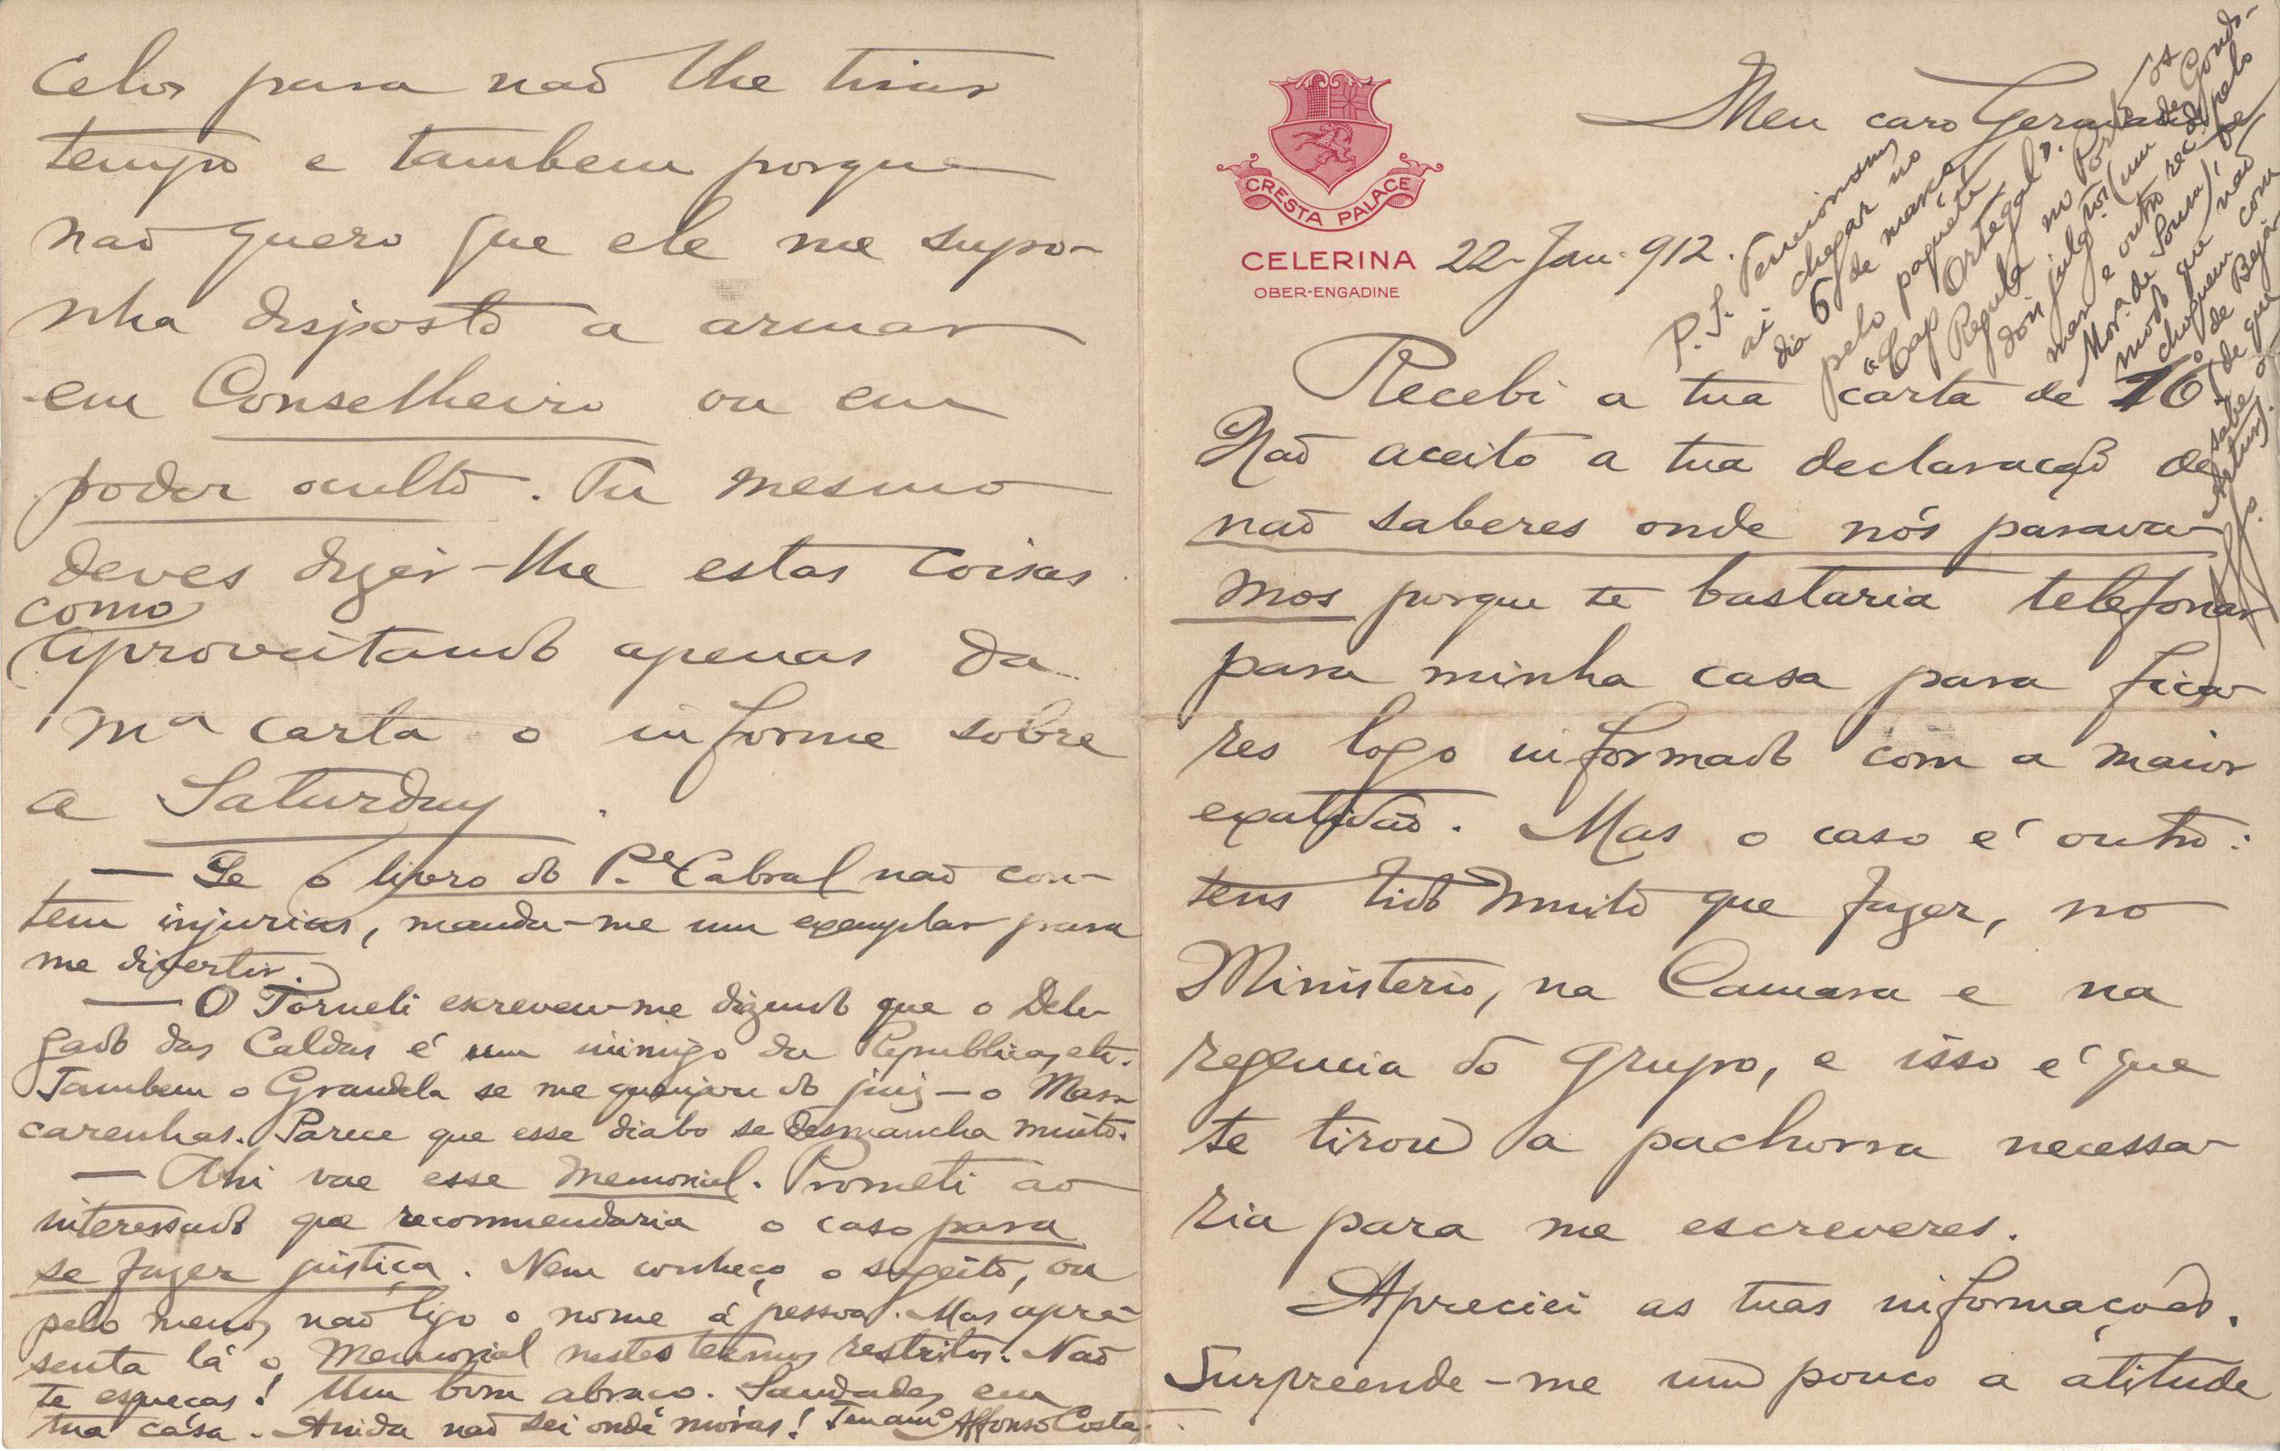 Meu caro Germano
CRESTA PALACE
CELERINA
OBER-ENGADINE
22-Jan-912.
Recebi a tua carta de 16.
Não aceito a tua declaração de
não saberes onde nós parava-
mos porque te bastaria telefonar
para minha casa para fica-
res logo informado com a maior
exatidão. Mas o caso é outro:
tens tido muito que fazer, no
Ministerio, na Camara e na
regencia do grupo, e isso é que
te tirou a pachorra necessa-
ria para me escreveres.
Apreciei as tuas informações.
Surpreende-me um pouco a atitude
P.S. Tencionamos
aí chegar no
dia 6 de março
pelo paquete
"Cap Ortegal".
Regula no Porto os
dois julg.tos (um de Gondo-
mar e outro rec.do pelo
Mor.a de Sousa), de
modo que não
choquem com
o de Beja
(de que
sabe o
Artur).
Aff.o
celos para não lhe tirar
tempo e tambem porque
não quero que ele me supo-
nha disposto a armar
em Conselheiro ou em
poder oculto. Tu mesmo
deves dizer-lhe estas coisas
como
aproveitando apenas da
m.a carta o informe sobre
a Saturday.
— Se o livro do P.e Cabral não con-
tem injurias, manda-me um exemplar para
me divertir.
— O Torneli escreveu-me dizendo que o Dele-
gado das Caldas é um inimigo da Republica, etc.
Tambem o Grandela se me queixou do juiz — o Mas-
carenhas. Parece que esse diabo se desmancha muito.
— Ahi vae esse memorial. Prometi ao
interessado que recommendaria o caso para
se fazer justiça. Nem conheço o sugeito, ou
pelo menos não ligo o nome á pessoa. Mas apre-
senta lá o Memorial nestes termos restritos. Não
te esqueças! Um bom abraço. Saudades em
tua casa. Ainda não sei onde móras! Teu am.o Affonso Costa.